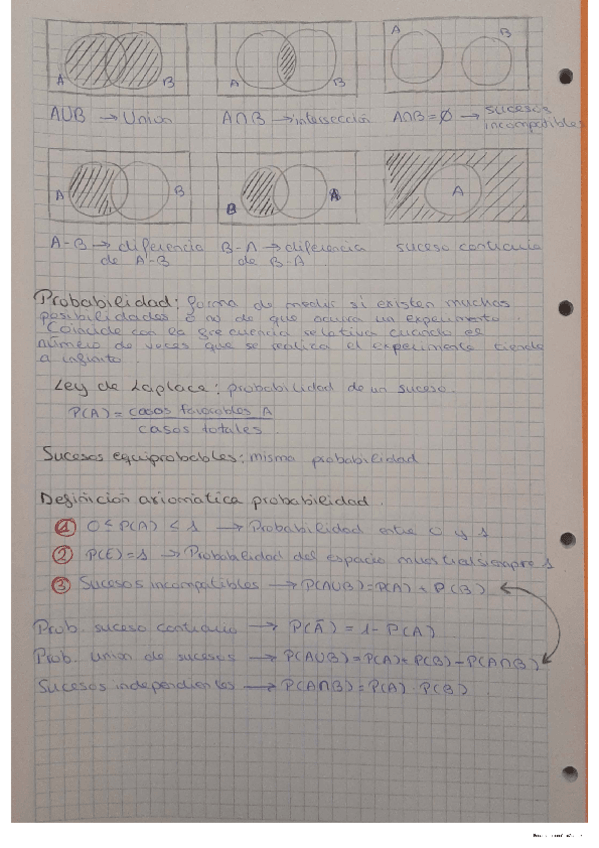 A B
A B
A B
A∪B → Unión
A∩B → intersección
A∩B = ∅ → sucesos
incompatibles
A B
B A
A
A-B → diferencia
de A-B
B-A → diferencia
de B-A
suceso contrario
Probabilidad: forma de medir si existen muchas
posibilidades o no de que ocurra un experimento.
Coincide con la frecuencia relativa cuando el
número de veces que se realiza el experimento tiende
a infinito.
Ley de Laplace: probabilidad de un suceso.
P(A) = casos favorables A
casos totales.
Sucesos equiprobables: misma probabilidad
Definición axiomática probabilidad.
① 0 ≤ P(A) ≤ 1 → Probabilidad entre 0 y 1
② P(E) = 1 → Probabilidad del espacio muestral siempre 1
③ Sucesos incompatibles → P(A∪B) = P(A) + P(B)
Prob. suceso contrario → P(Ā) = 1 - P(A)
Prob. unión de sucesos → P(A∪B) = P(A) + P(B) - P(A∩B)
Sucesos independientes → P(A∩B) = P(A) · P(B)